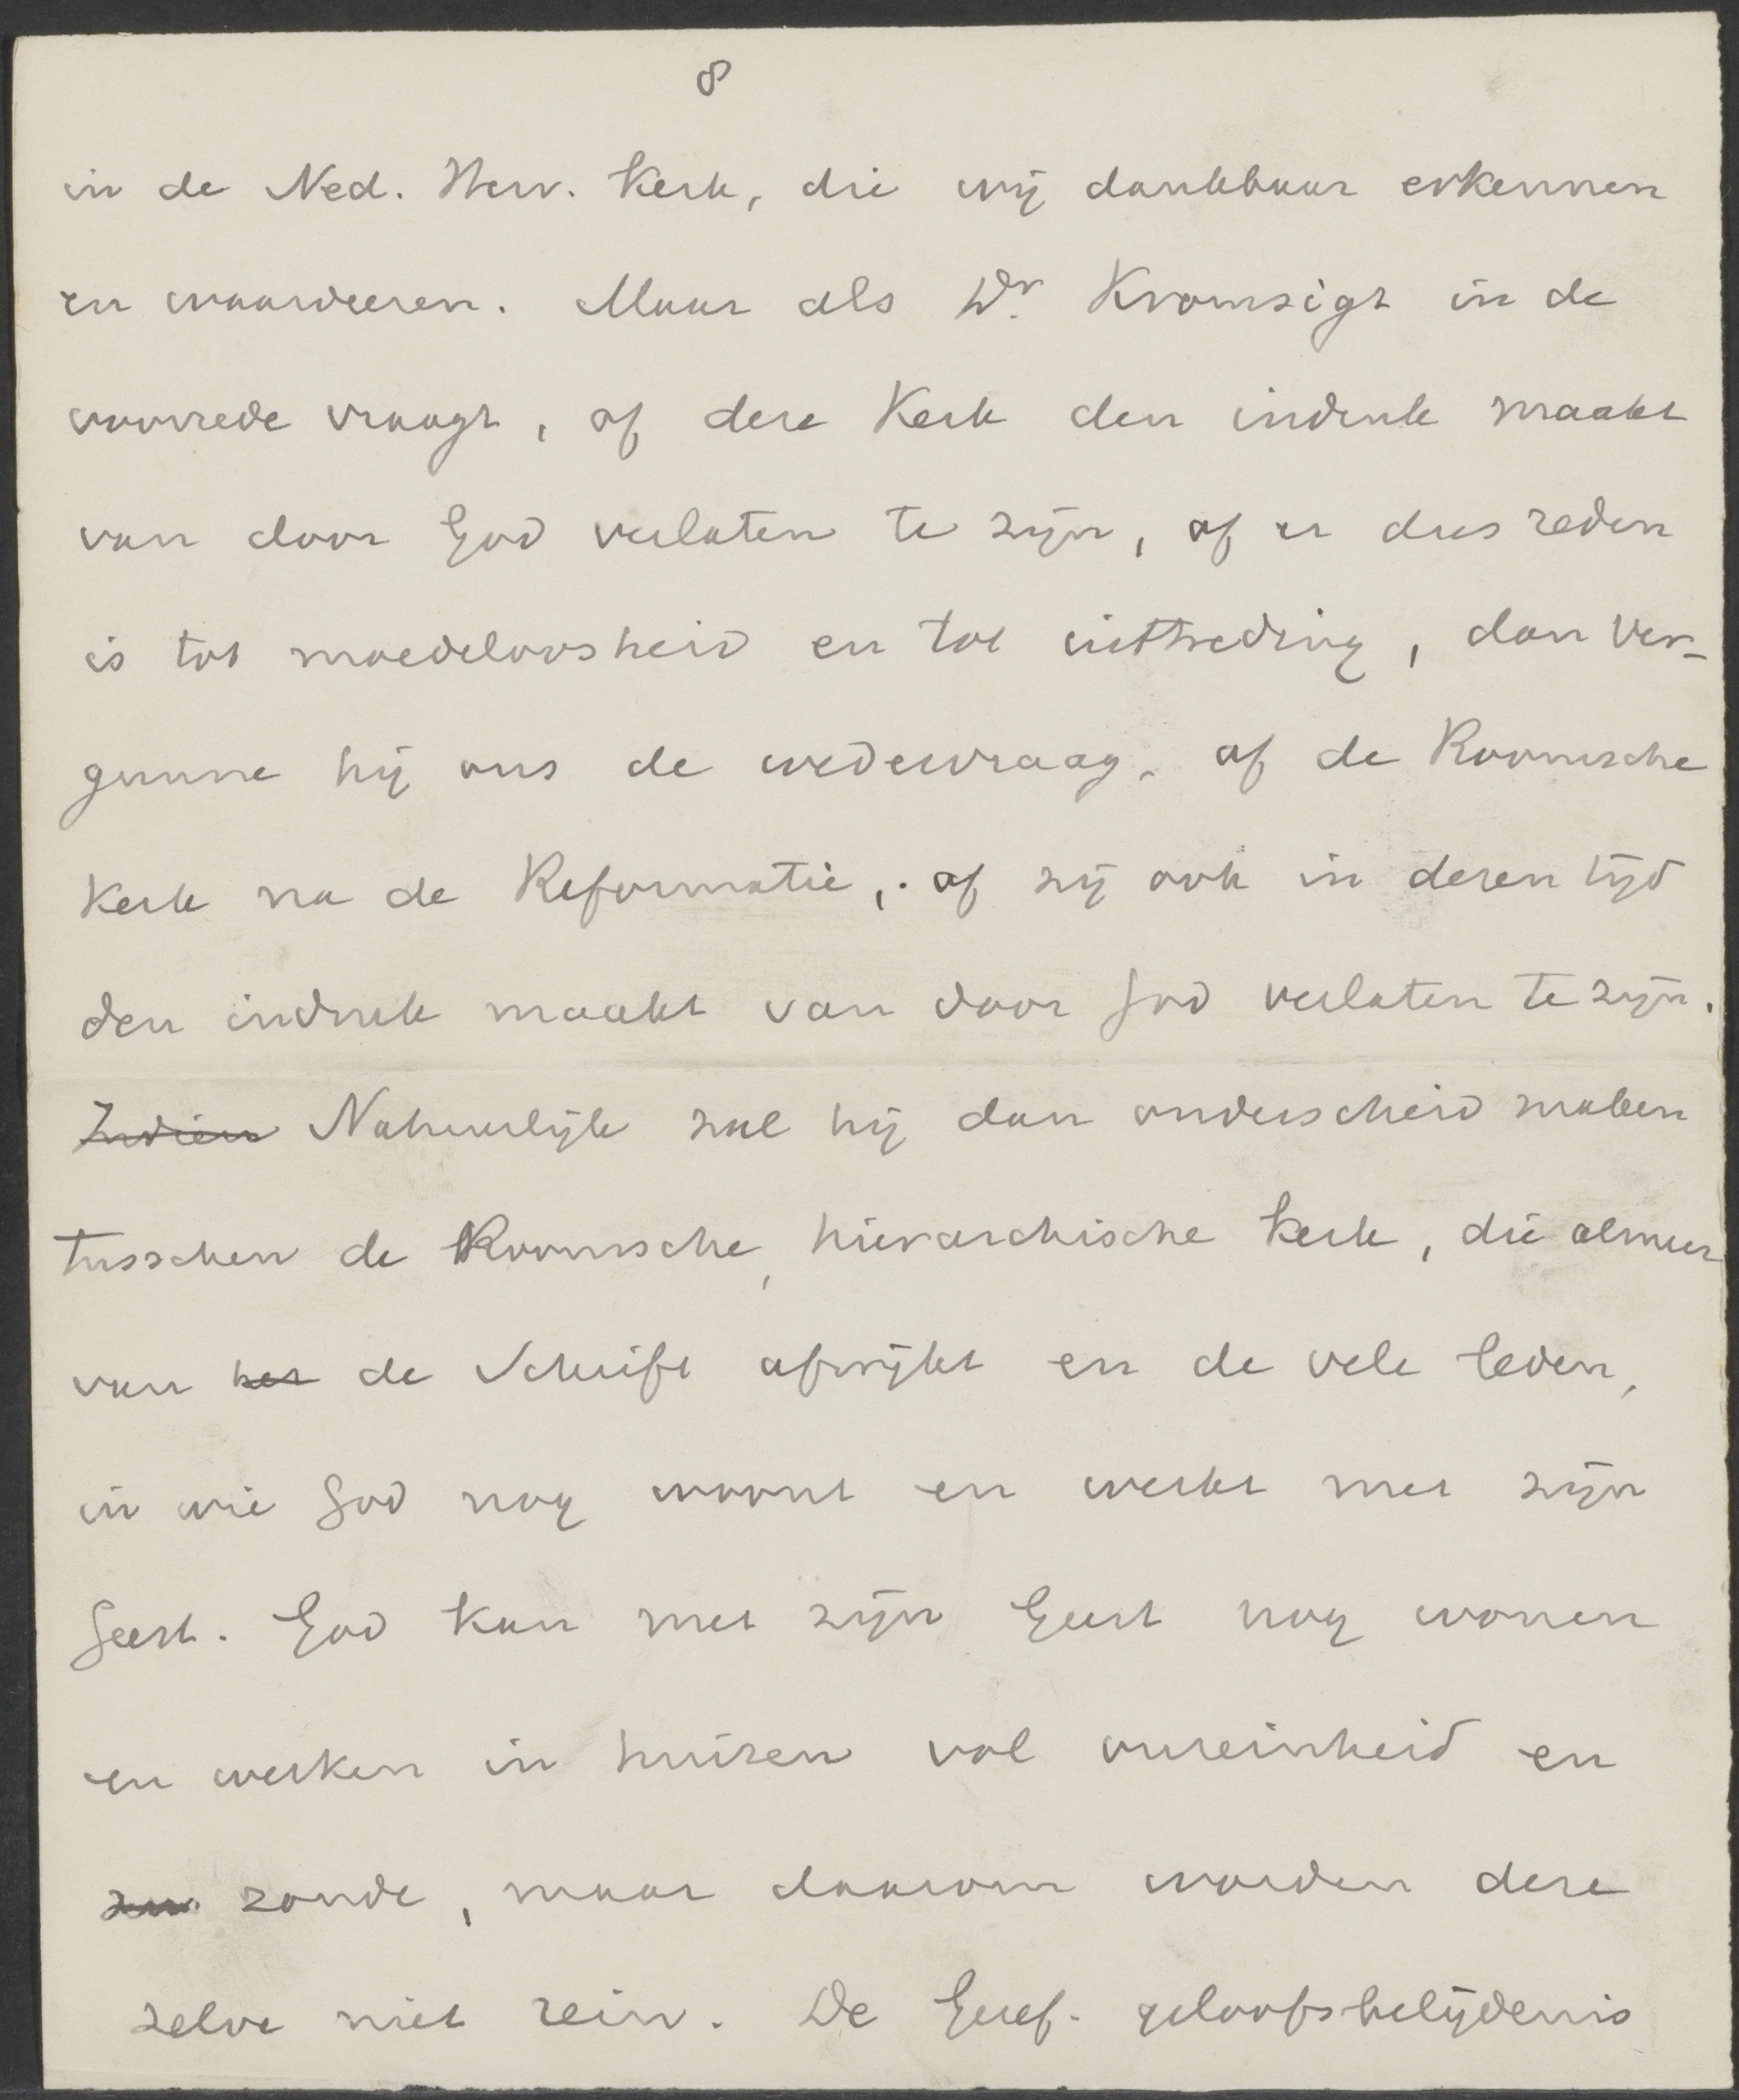 8
in de Ned. Herv. Kerk, die wij dankbaar erkennen
en waardeeren. Maar als Dr. Kromsigt in de
voorrede vraagt, of deze Kerk den indruk maakt
van door God verlaten te zijn, of er dus reden
is tot moedeloosheid en tot uittreding, dan ver-
gunne hij ons de wedervraag, of de Roomsche
Kerk na de Reformatie, of zij ook in dezen tijd
den indruk maakt van door God verlaten te zijn.
Indien Natuurlijk zal hij dan onderscheid maken
tusschen de Roomsche, hierarchische Kerk, die almeer
van het de Schrift afwijkt en de vele leden,
in wie God nog woont en werkt met zijn
Geest. God kan met zijn Geest nog wonen
en werken in huizen vol onreinheid en
zonde, maar daarom worden deze
zelve niet rein. De Geref. geloofsbelijdenis